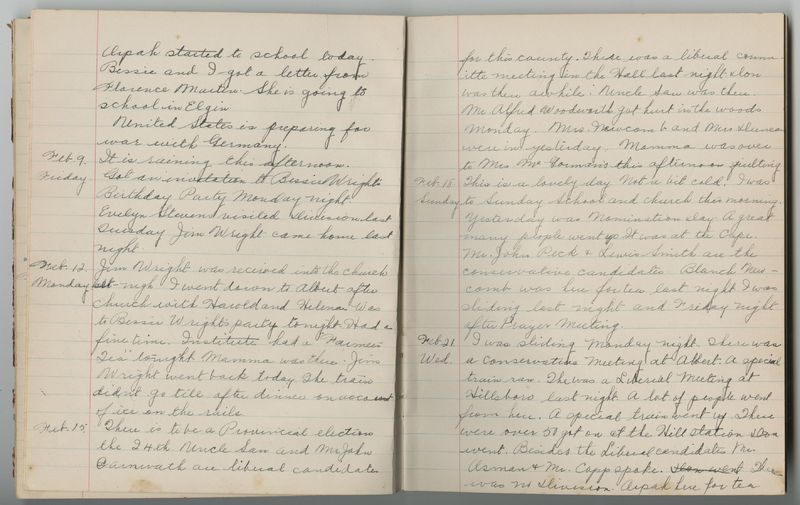 Arpah started to school today.
Bessie and I got a letter from
Florence Martin. She is going to
school in Elgin
United States is preparing for
war with Germany.
Feb. 9. It is raining this afternoon.
Friday Got an invitation to Bessie Wright's
Birthday Party Monday night
Evelyn Stevens visited Division last
Tuesday Jim Wright came home last
night
Feb. 12. Jim Wright was received into the church
Monday last nigh I went down to Albert after
church with Harold and Helena. Was
to Bessie Wright's party tonight Had a
fine time. Institute had a "Farmers
Tea" tonight Mamma was there. Jim
Wright went back today The train
didn't go till after dinner on account
of ice on the rails
Feb. 15 There is to be a Provincial election
the 24th. Uncle San and Mr John
are liberal candidates
for this county. There was a liberal comm
ittee meeting in the Hall last night & Lon
was there awhile. Uncle San was there.
Mr. Alfred Woodworth got hurt in the woods
Monday. Mrs. Newcomb and Mrs
were in yesterday. Mamma was over
to Mrs Mc Gorman's this afternoon quilting
Feb. 18. This is a lovely day Not a bit cold. I was
Sunday to Sunday School and church this morning.
Yesterday was Nomination day A great
many people went up It was at the Cape.
Mr. John Peck & Lewis Smith are the
conservative candidates. Blanch New-
comb was here for tea last night I was
sliding last night and Friday night
after Prayer Meeting.
Feb. 21. I was sliding Monday night. There was
Wed. a Conservative Meeting at Albert. A special
train ran. The was a Liberal Meeting at
Hillsboro last night A lot of people went
from here. A special train went up. There
were over 50 got on at the Hill station
went. Besides the Liberal candidates Mr.
Asman & Mr. Copp spoke. Lon went There
was no Division. Arpah here for tea